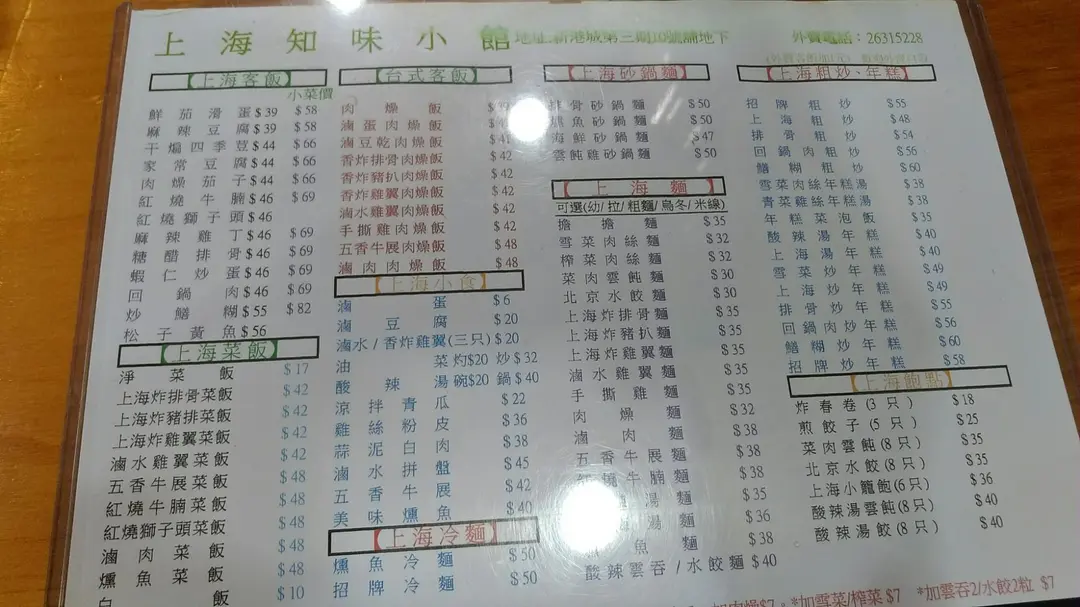 上海知味小館
地址:新港城第三期10號舖地下
外賣電話:26315228
【上海客飯】
小菜價
鮮茄滑蛋 $39 $58
麻辣豆腐 $39 $58
干煸四季荳 $44 $66
家常豆腐 $44 $66
肉燥茄子 $44 $66
紅燒牛腩 $46 $69
紅燒獅子頭 $46
麻辣雞丁 $46 $69
糖醋排骨 $46 $69
蝦仁炒蛋 $46 $69
回鍋肉 $46 $69
炒鱔糊 $55 $82
松子黃魚 $56
【上海菜飯】
淨菜飯 $17
上海炸排骨菜飯 $42
上海炸豬排菜飯 $42
上海炸雞翼菜飯 $42
滷水雞翼菜飯 $42
五香牛展菜飯 $48
紅燒牛腩菜飯 $48
紅燒獅子頭菜飯 $48
滷肉菜飯 $48
燻魚菜飯 $48
白 $10
【台式客飯】
肉燥飯
滷蛋肉燥飯
滷豆乾肉燥飯
香炸排骨肉燥飯 $42
香炸豬扒肉燥飯 $42
香炸雞翼肉燥飯 $42
滷水雞翼肉燥飯 $42
手撕雞肉燥飯 $42
五香牛展肉燥飯 $48
滷肉肉燥飯 $48
【上海小食】
滷蛋 $6
滷豆腐 $20
滷水/香炸雞翼(三只) $20
油菜 灼$20 炒$32
酸辣湯 碗$20 鍋$40
涼拌青瓜 $22
雞絲粉皮 $36
蒜泥白肉 $38
滷水拼盤 $45
五香牛展 $42
美味燻魚 $40
【上海冷麵】
燻魚冷麵 $50
招牌冷麵 $50
【上海砂鍋麵】
排骨砂鍋麵 $50
燻魚砂鍋麵 $50
海鮮砂鍋麵 $47
雲飩雞砂鍋麵 $50
【上海麵】
可選(幼/拉/粗麵/烏冬/米線)
擔擔麵 $35
雪菜肉絲麵 $32
榨菜肉絲麵 $32
菜肉雲飩麵 $30
北京水餃麵 $30
上海炸排骨麵 $35
上海炸豬扒麵 $35
上海炸雞翼麵 $35
滷水雞翼麵 $35
手撕雞麵 $35
肉燥麵 $32
滷肉麵 $38
五香牛展麵 $38
牛腩麵 $38
湯麵 $35
湯麵 $36
魚麵 $38
酸辣雲吞/水餃麵 $40
【上海粗炒、年糕】
招牌粗炒 $55
上海粗炒 $48
排骨粗炒 $54
回鍋肉粗炒 $56
鱔糊粗炒 $60
雪菜肉絲年糕湯 $38
青菜雞絲年糕湯 $38
年糕菜泡飯 $35
酸辣湯年糕 $40
上海湯年糕 $40
雪菜炒年糕 $49
上海炒年糕 $49
排骨炒年糕 $55
回鍋肉炒年糕 $56
鱔糊炒年糕 $60
招牌炒年糕 $58
【上海飽點】
炸春卷(3只) $18
煎餃子(5只) $25
菜肉雲飩(8只) $35
北京水餃(8只) $35
上海小籠飽(6只) $36
酸辣湯雲飩(8只) $40
酸辣湯水餃(8只) $40
加肉燥$7。*加雪菜/榨菜 $7 *加雲吞2/水餃2粒 $7